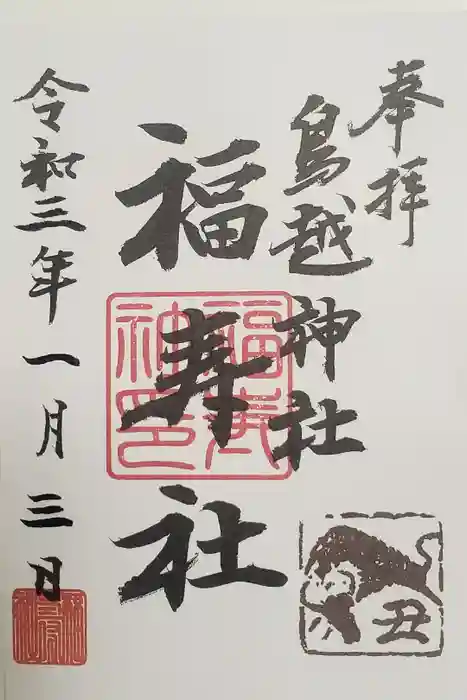 奉拝
鳥越神社
福寿社
令和三年一月三日
福寿神印
丑